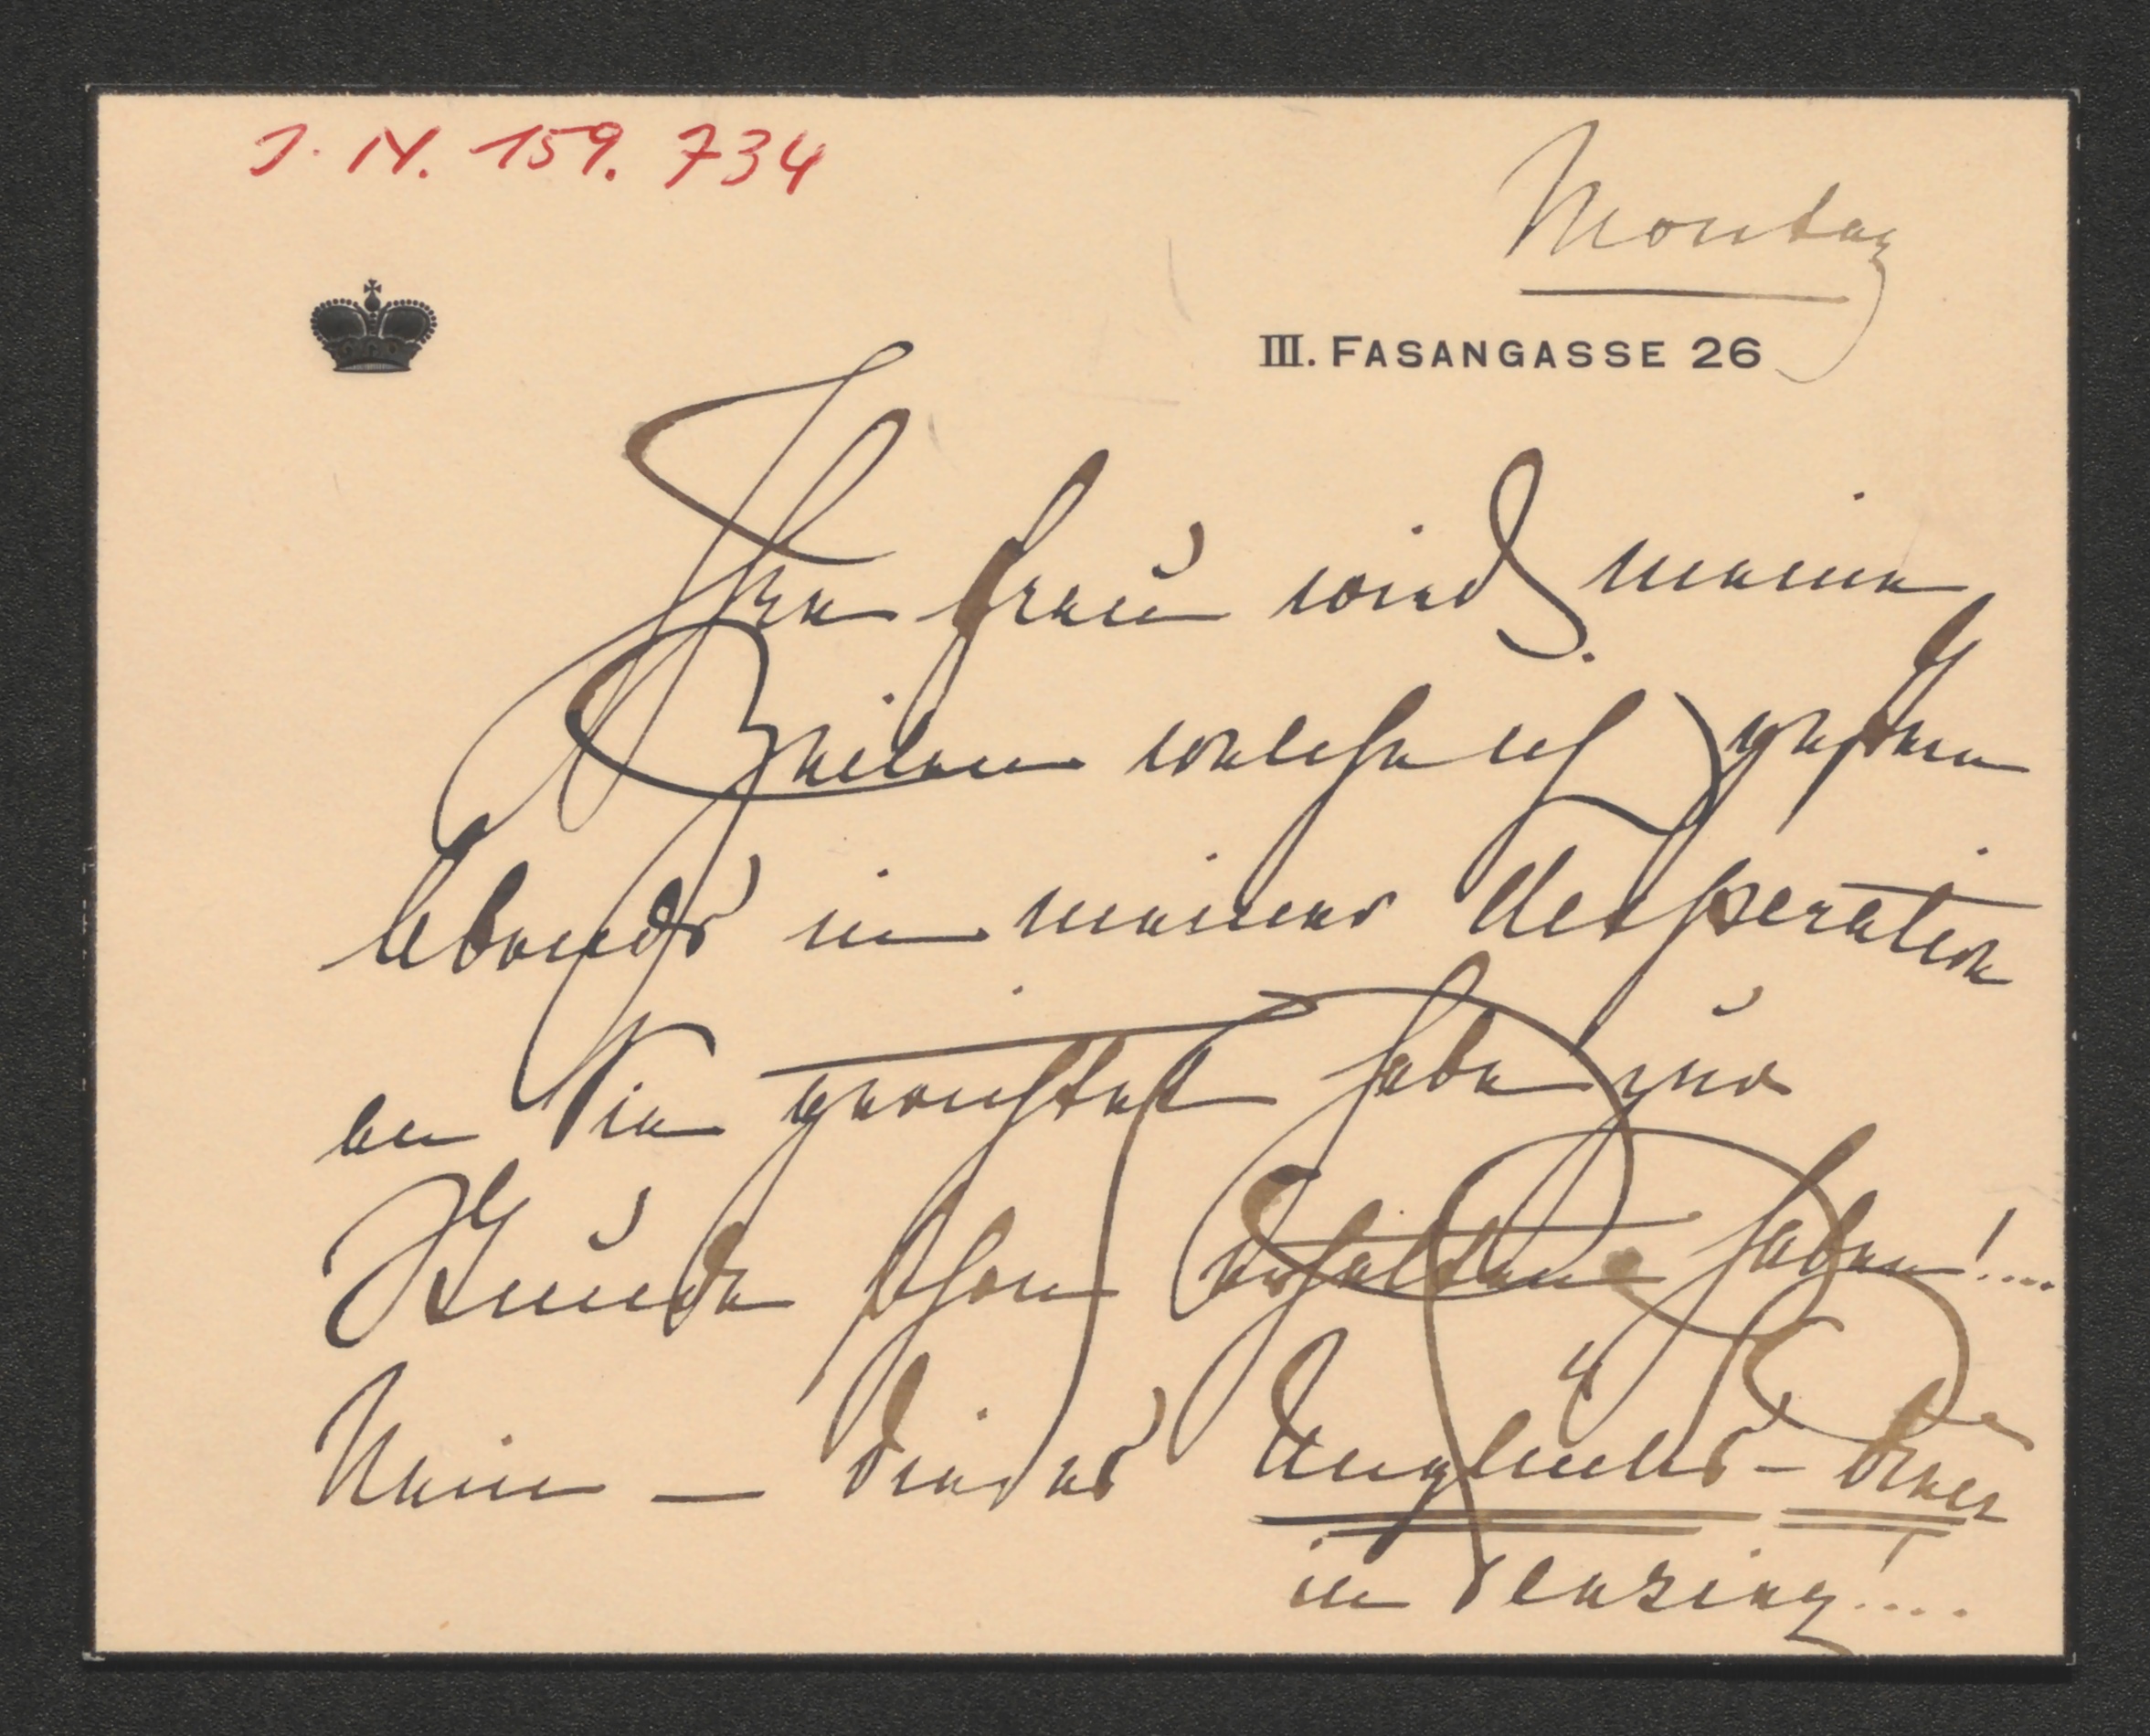 J. N. 159.734
Montag
III. FASANGASSE 26
Ihre Frau wird meine
Zeilen welche ich gestern
Abends in meiner Desperation
an Sie gerichtet habe zur
Kunde schon erhalten haben!....
Nein – dieses Unglücks-
in Penzing!....